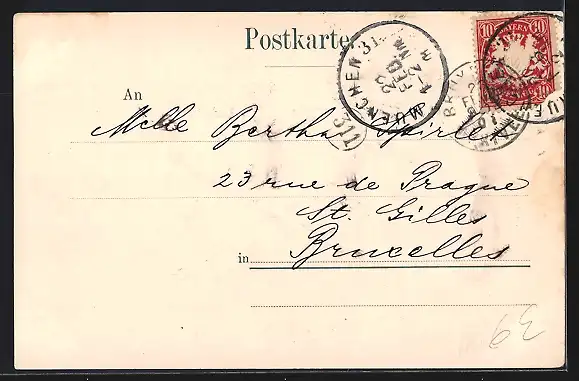 Postkarte
MUENCHEN 31
20 FEB
NM
113
10 BAYERN 10
An
Melle Bertha Spirlet
23 rue de Prague
St. Gilles
in Bruxelles